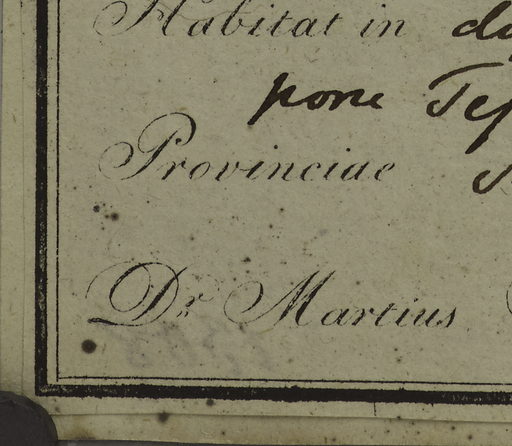 Habitat in
pone
Provinciae
Dr. Martius